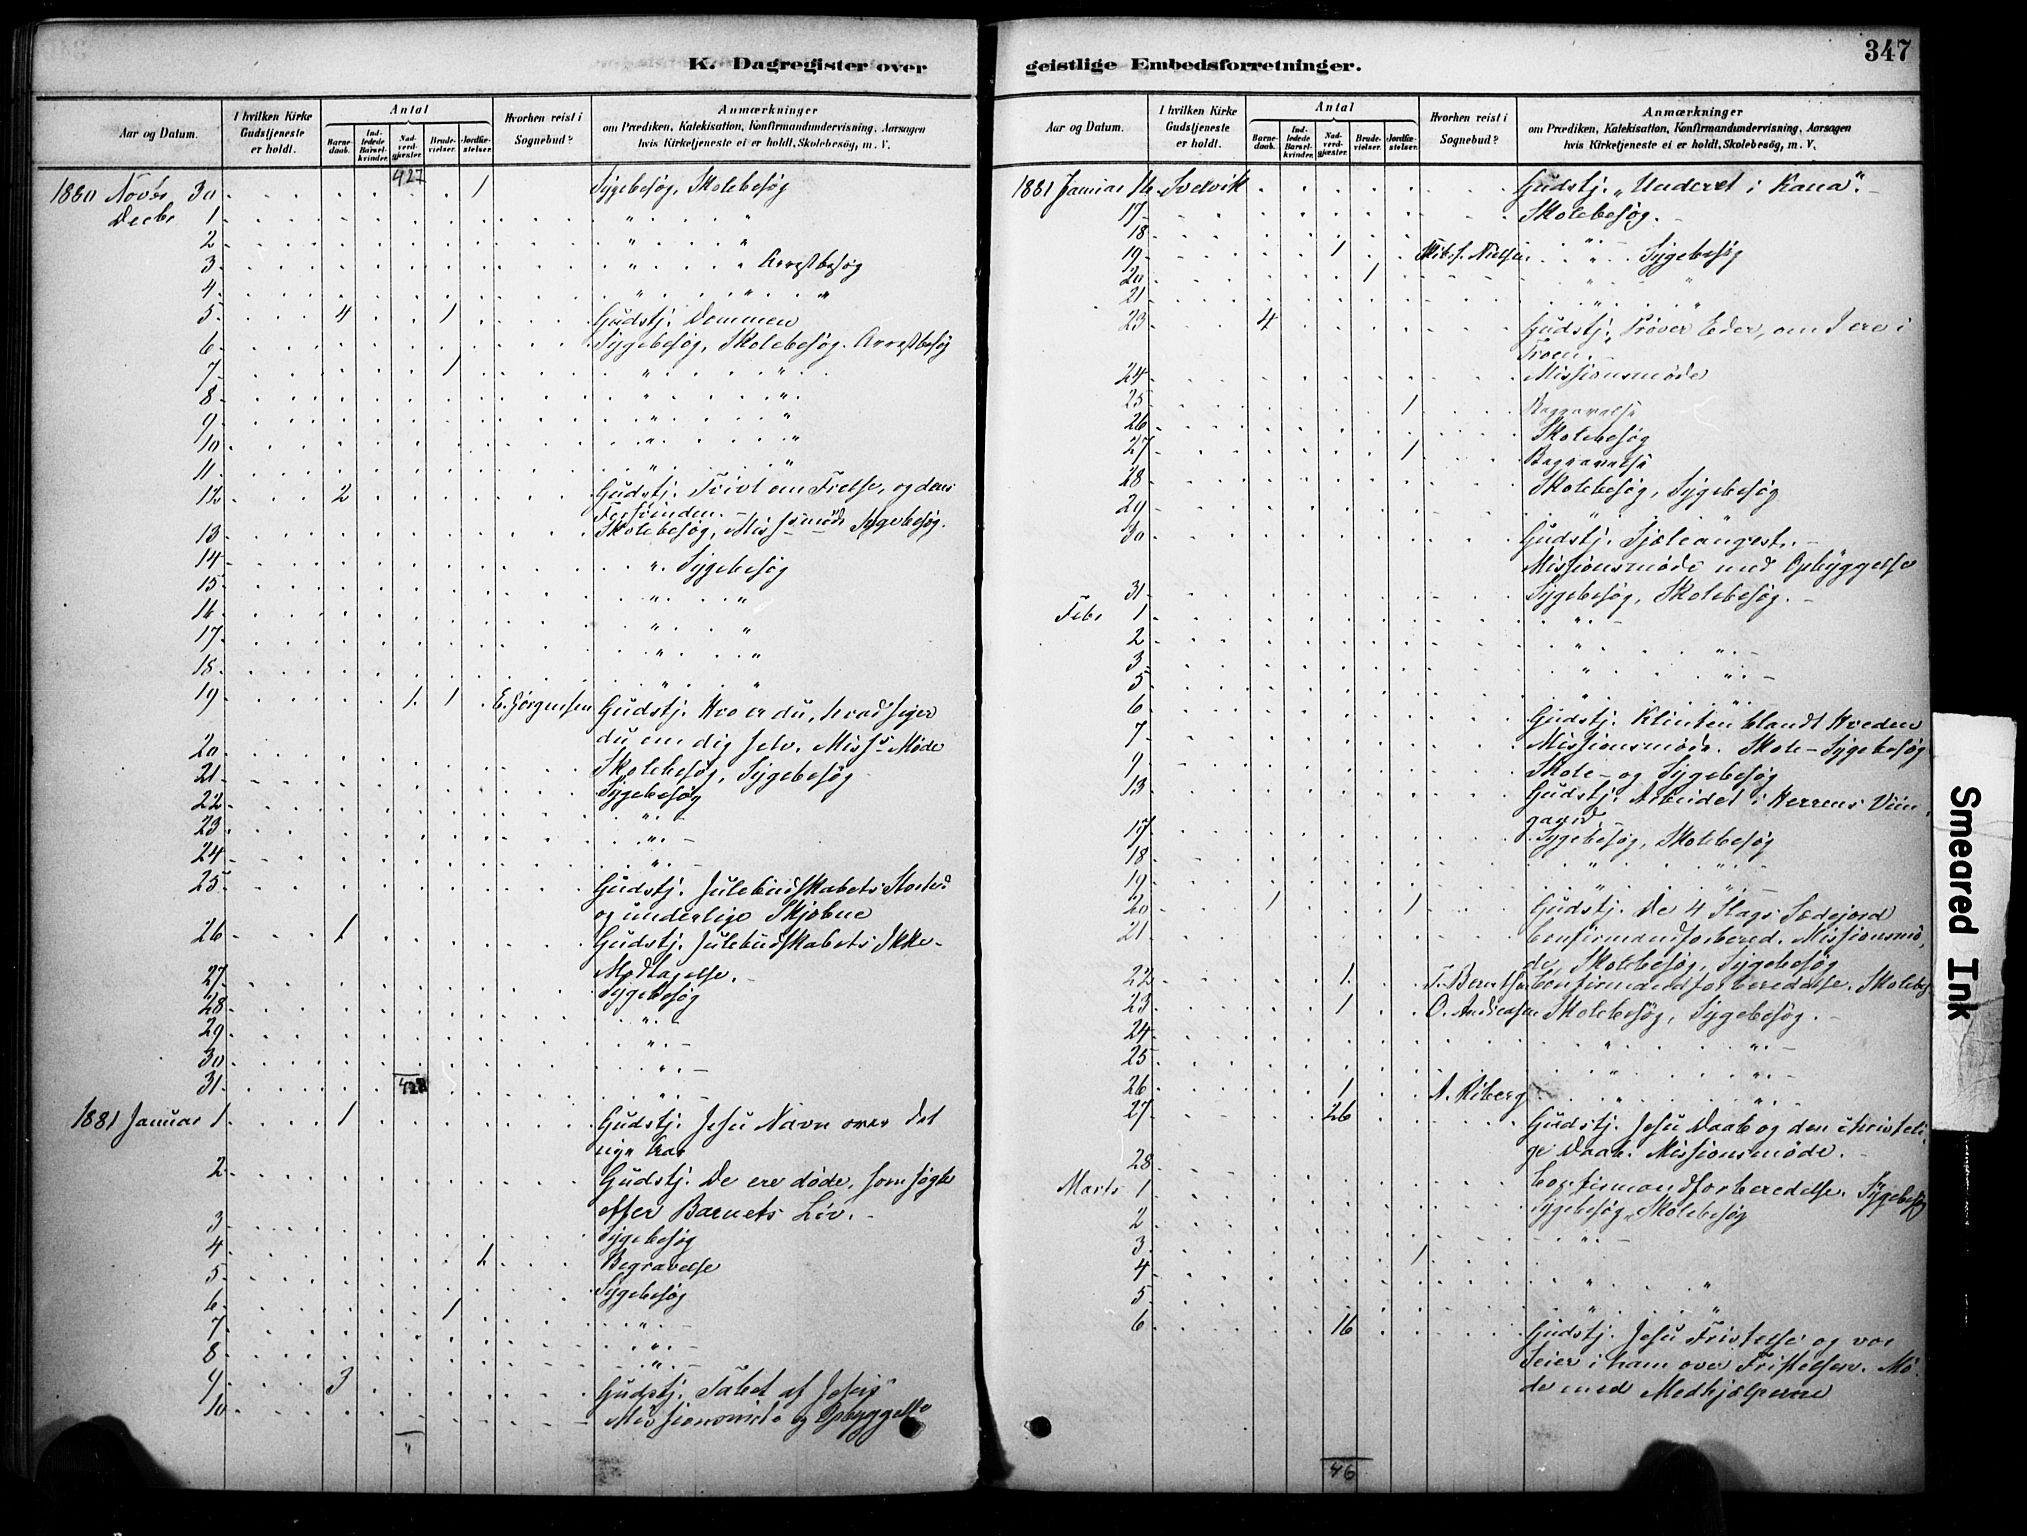 K. Dagregister over
Aar og Datum.
I hvilken Kirke Gudstjeneste er holdt.
Antal
Barnedaab.
Indledede Barselkvinder.
Nadverdgjæster.
Brudevielser.
Jordfæstelser.
Hvorhen reist i Sognebud?
Anmærkninger
om Prædiken, Katekisation, Konfirmandundervisning, Aarsagen
hvis Kirketjeneste ei er holdt, Skolebesög, m. V.
427
1880 Novbr 30 1 Sygebesøg, Skolebesøg
Decbr 1 " "
2 " "
3 " " Arrestbesøg
4 " " "
5 4 1 Gudstj. Dommen
6 Sygebesøg, Skolebesøg. Arrestbesøg
7 1 " "
8 " "
9 " "
10 " "
11 " "
12 2 Gudstj. Tvivl om Frelse, og dens
13 Skolebesøg, Sygebesøg.
14 " Sygebesøg
15 " "
16 " "
17 " "
18 " "
19 1 1 E. Jørgensen Gudstj. Hvo er du, hvad siger
du om dig selv. Miss: Møde
20 Skolebesøg, Sygebesøg
21 Sygebesøg
22 "
23 "
24 "
25 Gudstj. Julebudskabets
og underlige Skjæbne
26 1 Gudstj. Julebudskabets Ikke-
Modtagelse.
27 Sygebesøg
28 "
29 "
30 "
31 428 "
1881 Januar 1 1 Gudstj. Jesu Navn over det
nye Aar
2 Gudstj. De ere døde, som søgte
efter Barnets Liv.
3 Sygebesøg
4 1 Begravelse
5 Sygebesøg
6 1 "
7 "
8 "
9 3 Gudstj. Tabet af Jesus"
10 Missionsmøde og Opbyggelse
"
geistlige Embedsforretninger.
347
Aar og Datum.
I hvilken Kirke Gudstjeneste er holdt.
Antal
Barnedaab.
Indledede Barselkvinder.
Nadverdgjæster.
Brudevielser.
Jordfæstelser.
Hvorhen reist i Sognebud?
Anmærkninger
om Prædiken, Katekisation, Konfirmandundervisning, Aarsagen
hvis Kirketjeneste ei er holdt, Skolebesög, m. V.
1881 Januar 16 Svelvik Gudstj. "Underet i Kana".
17 Skolebesøg.
18 "
19 1 Nielsen " Sygebesøg
20 1 " "
21 " "
23 4 Gudstj. "Prøver Eder, om I ere i
Troen.
24 Missionsmøde
25 1 Begravelse
26 Skolebesøg
27 1 Begravelse
28 Skolebesøg, Sygebesøg
29 " "
30 Gudstj. Sjæleangest.
Missionsmøde med Opbyggelse
31 Sygebesøg, Skolebesøg.
Febr 1 "
2 " "
3 " "
5 " "
6 Gudstj. Klinten blandt Hveden
7 Missionsmøde. Skole-Sygebesøg
9 Skole- og Sygebesøg
13 Gudstj. Arbeidet i Herrens Viin-
gaard
17 Sygebesøg, Skolebesøg
18 " "
19 " "
20 1 1 Gudstj. De 4 Slags Sædejord
21 Confirmandforbered. Missionsmø-
de, Skolebesøg, Sygebesøg
22 1 T. Berntsen Confirmandforberedelse. Skolebes
23 1 O. Andersen Skolebesøg, Sygebesøg.
24 " "
25 " "
26 1 A. Kiberg " "
27 26 Gudstj. Jesu Daab og den christeli-
ge Daab. Missionsmøde.
28 Confirmandforberedelse. Sygebesøg
Marts 1 Sygebesøg, Skolebesøg
2 "
3 1
4 " "
5 " "
6 16 Gudstj. Jesu Fristelse og vor
Seier i ham over Fristelsen. Mø-
de med Medhjælperne
46
Smeared Ink